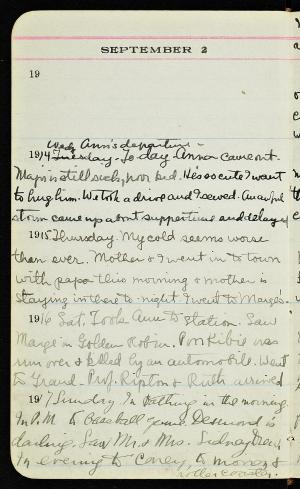 SEPTEMBER 2
19
Wed. Ann's departure -
1914 Tuesday - To day Anna came out.
Maj's is still sick, poor kid. He's so cute I want
to hug him. We took a drive and I sewed. An awful
storm came up about supper time and delayed
1915 Thursday My cold seems worse
than ever. Mother & I went in to town
with papa this morning & mother is
staying in there to-night I went to Marge's.
1916 Sat. Took Ann to station. Saw
Marge in Golden Robin. Poor Kibie was
run over & killed by an automobile. Went
to Grand. Prof. Ripton & Ruth arrived
1917 Sunday In bathing in the morning.
In P.M. to Baseball game, Desmond is
darling. Saw Mr. & Mrs. Sidney Drew,
In evening to Coney, to movies &
roller coaster.